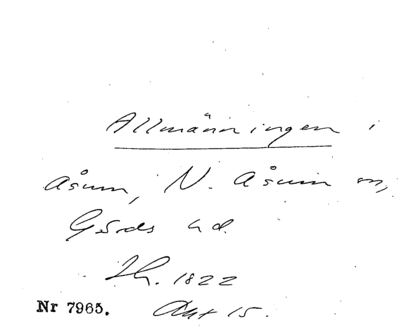 Allmänningen i
Åsum, N. Åsum sn,
Gärds hd.
Sk. 1822
Nr 7965. Akt 15.